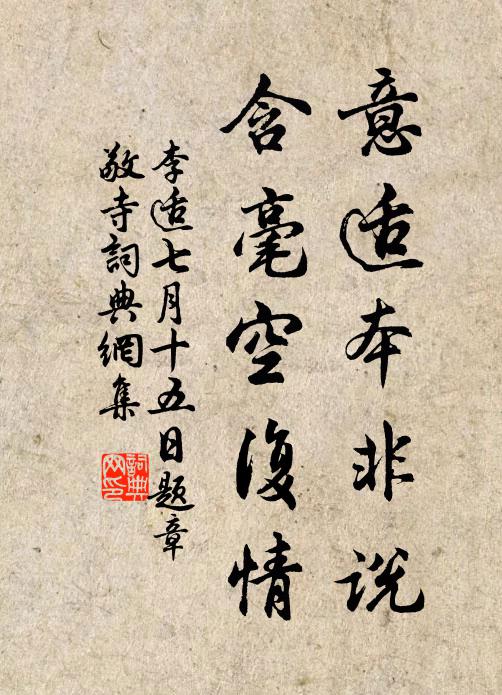 意适本非说
含毫空復情
李适七月十五日题章
敬寺詞典網集
詞典
网印